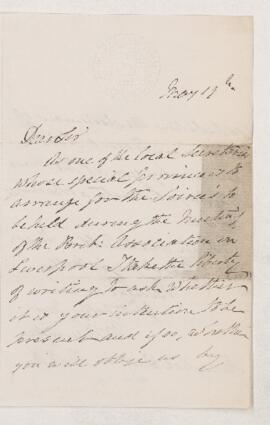 May 19th
Dear Sir
As one of the Local Secretaries
whose special province is to
arrange for the Soirées to
be held during the Meeting
of the Brit: Association in
Liverpool I take the liberty
of writing to ask whether
it is your intention to be
present and if so, whether
you will oblige us by